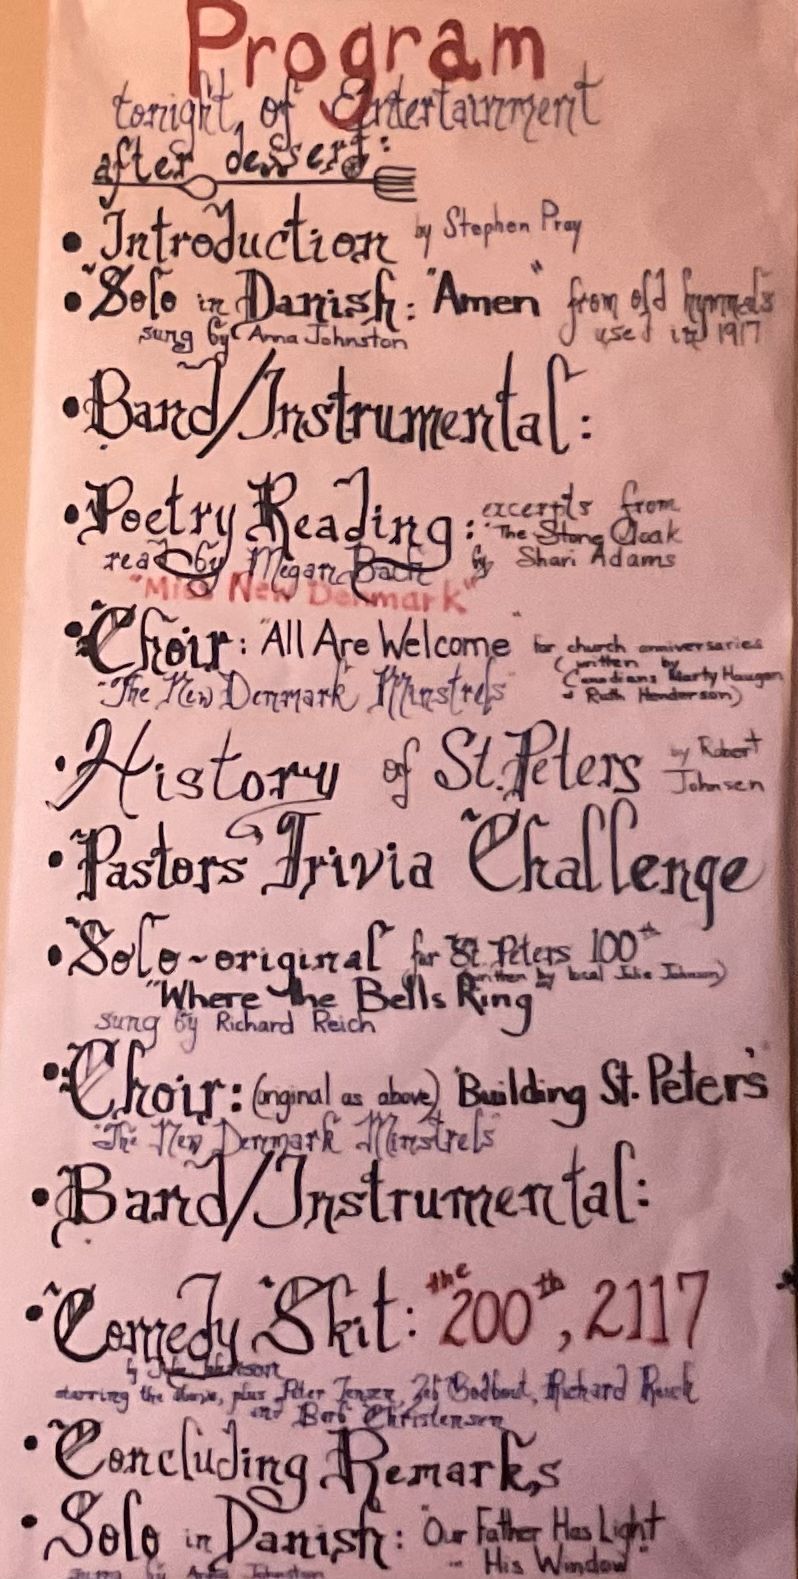 Program
tonight, of Entertainment
after dessert:
• Introduction by Stephen Pray
• Solo in Danish: "Amen" from old hymnals
sung by Anna Johnston used in 1917
• Band/Instrumental:
• Poetry Reading: excerpts from
"The Stone Cloak
read by Megan Bach by Shari Adams
"Miss New Denmark"
• Choir: "All Are Welcome" for church anniversaries
(written by
"The New Denmark Minstrels" Canadians Marty Haugen
& Ruth Henderson)
• History of St. Peters by Robert
Johnsen
• Pastors Trivia Challenge
• Solo~original for St. Peters 100th
(written by local Julie Johnson)
"Where the Bells Ring"
sung by Richard Reich
• Choir: (original as above) "Building St. Peter's
"The New Denmark Minstrels"
• Band/Instrumental:
• Comedy Skit: "the 200th, 2117
by
starring the above, plus Peter Jensen, Richard
and Barb Christensen
• Concluding Remarks
• Solo in Danish: "Our Father Has Light
in His Window"
sung by Anna Johnston